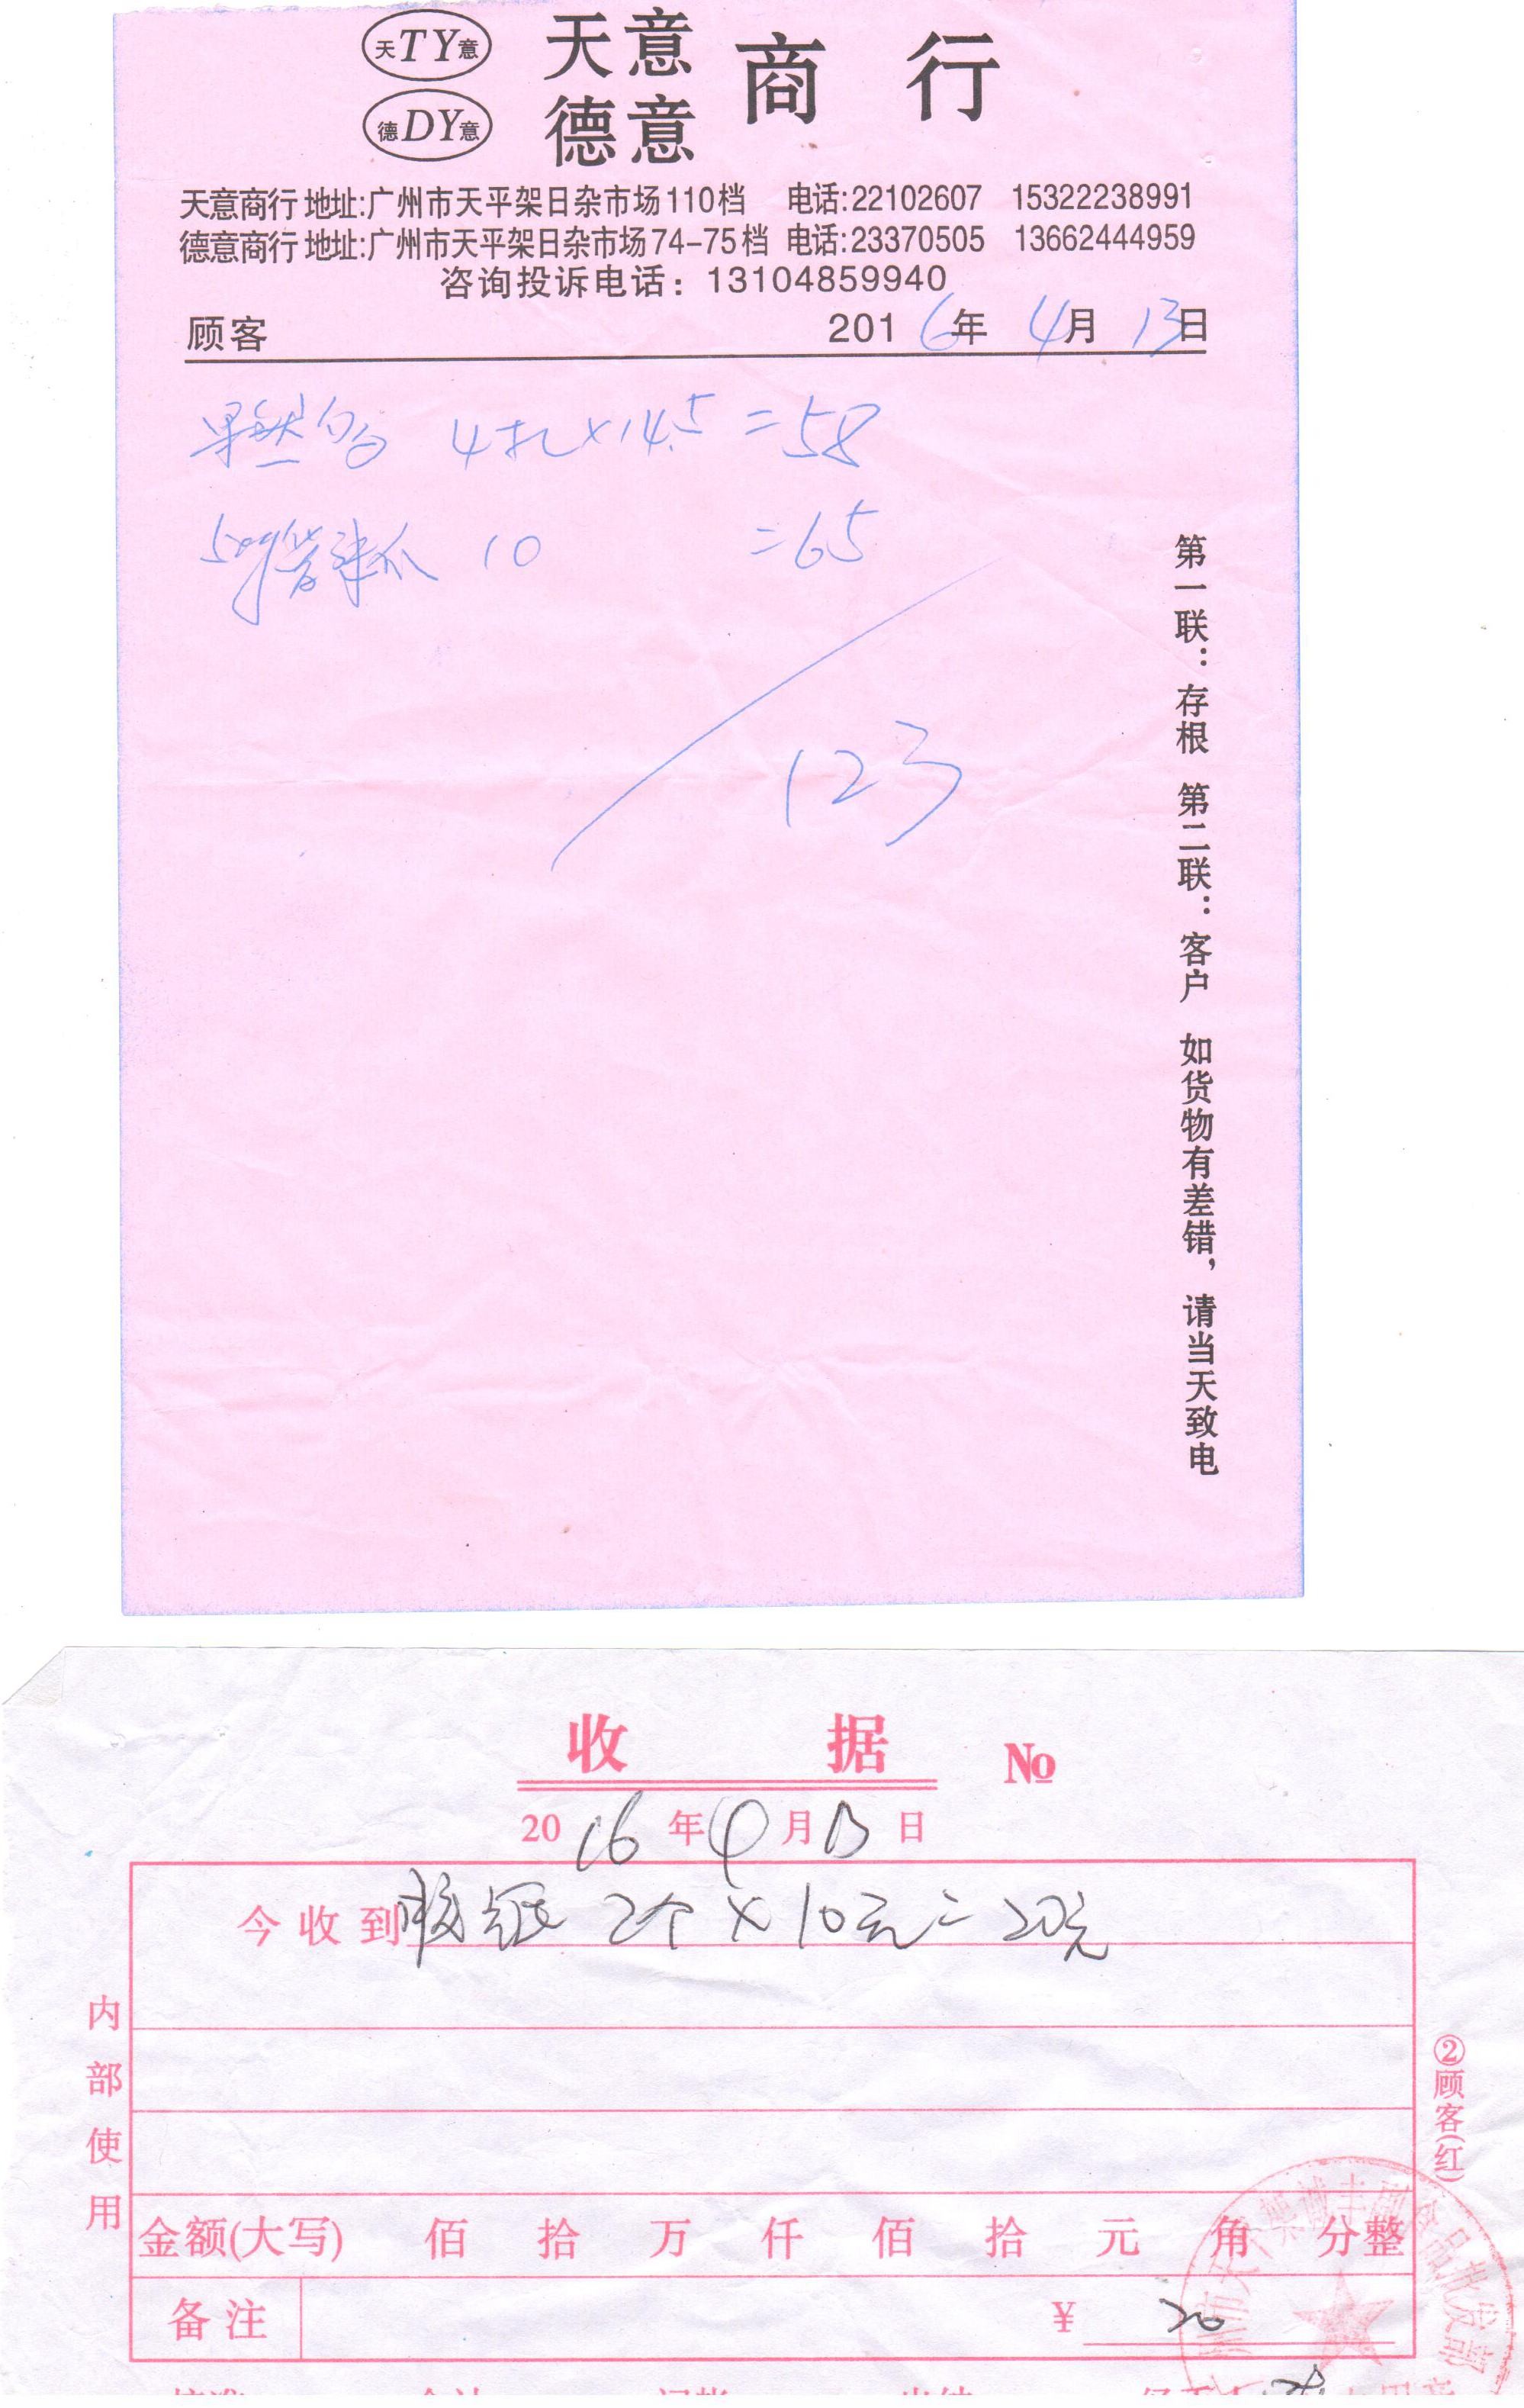 天TY意 天意 商行
德DY意 德意
天意商行 地址:广州市天平架日杂市场110档 电话:22102607 15322238991
德意商行 地址:广州市天平架日杂市场74-75档 电话:23370505 13662444959
咨询投诉电话: 13104859940
顾客 2016年 4月 13日
4扎×14.5=58
10 =65
123
第一联:存根 第二联:客户 如货物有差错,请当天致电
收据 №
2016年4月13日
今收到胶纸 2个×10元=20元
内部使用
②顾客(红)
金额(大写) 佰 拾 万 仟 佰 拾 元 角 分整
备注 ¥ 20